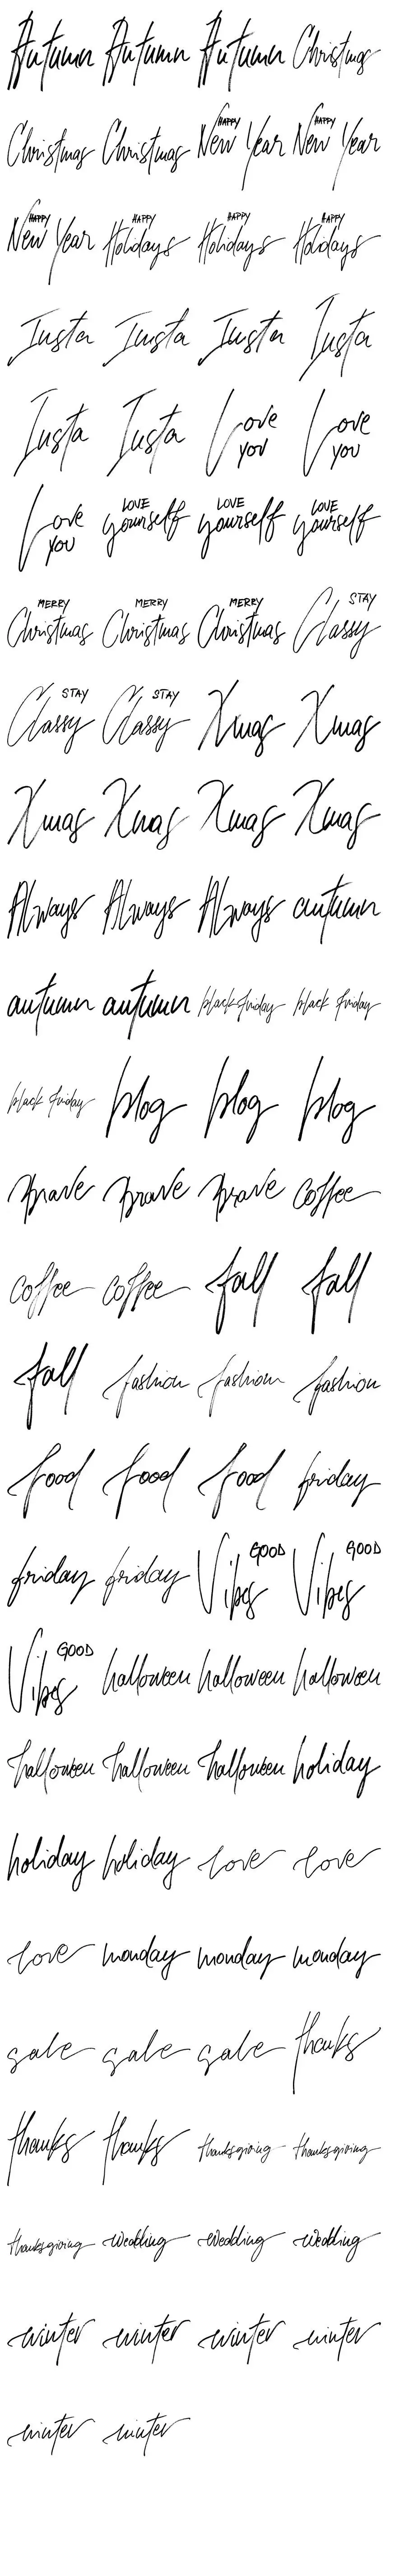 Autumn Autumn Autumn Christmas
Christmas Christmas HAPPY New Year HAPPY New Year
HAPPY New Year HAPPY Holidays HAPPY Holidays HAPPY Holidays
Insta Insta Insta Insta
Insta Insta Love you Love you
Love you LOVE yourself LOVE yourself LOVE yourself
MERRY Christmas MERRY Christmas MERRY Christmas STAY Classy
STAY Classy STAY Classy Xmas Xmas
Xmas Xmas Xmas Xmas
Always Always Always autumn
autumn autumn black friday black friday
black friday blog blog blog
brave brave brave coffee
coffee coffee fall fall
fall fashion fashion fashion
food food food friday
friday friday GOOD Vibes GOOD Vibes
GOOD Vibes halloween halloween halloween
halloween halloween halloween holiday
holiday holiday love love
love monday monday monday
sale sale sale thanks
thanks thanks thanksgiving thanksgiving
thanksgiving wedding wedding wedding
winter winter winter winter
winter winter